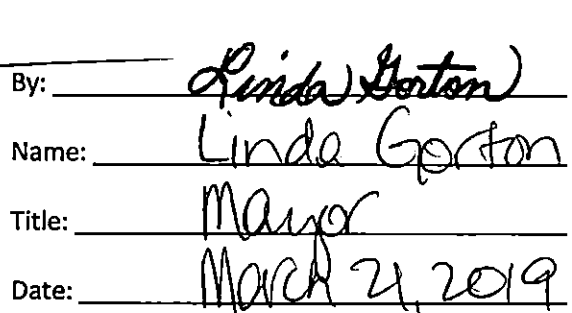 By: Linda Gorton
Name: Linda Gorton
Title: Mayor
Date: March 21, 2019